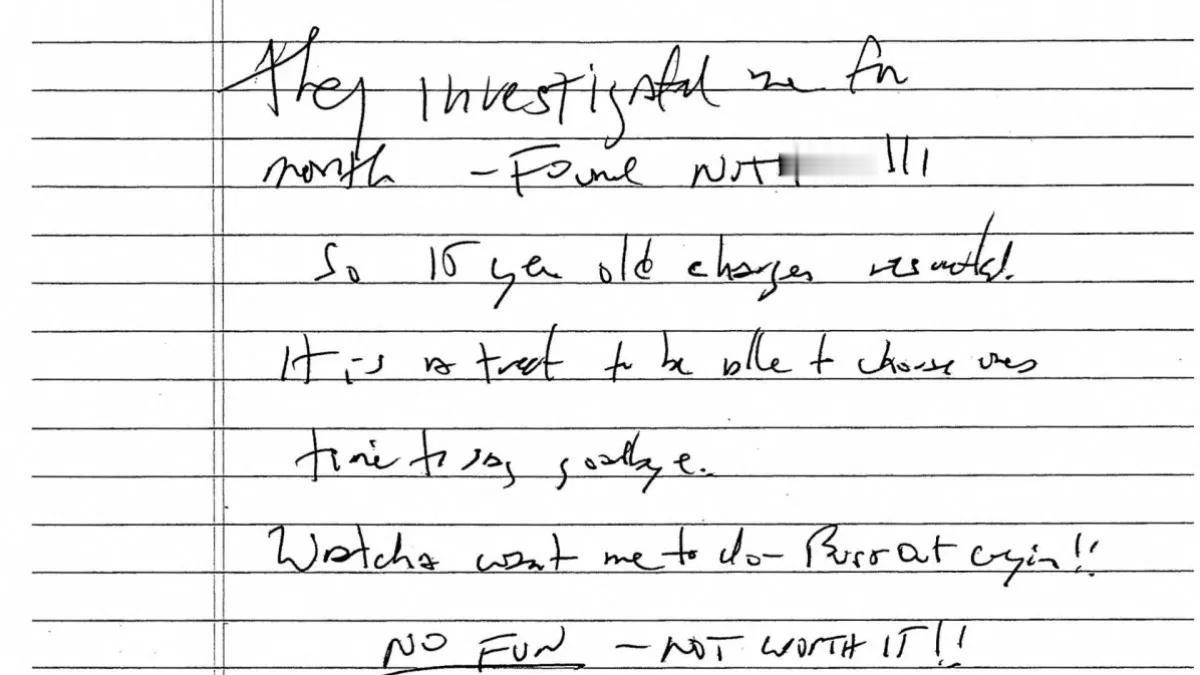 They investigated me for
month - Found NOT !!!
So 15 year old charges resulted.
It is a treat to be able to choose ones
time to say goodbye.
Watcha want me to do - Burst out cryin!!
NO FUN - NOT WORTH IT!!